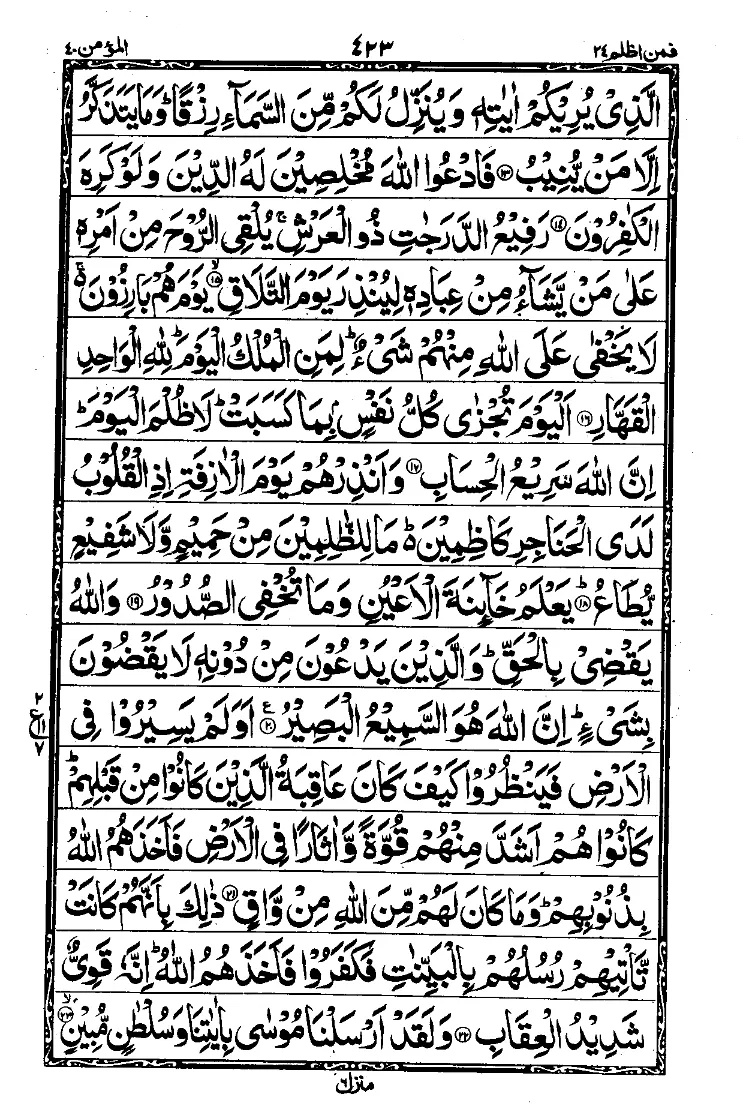 فمن اظلم ٢٤ ٤٢٣ المؤمن ٤٠
الَّذِىْ يُرِيْكُمْ اٰيٰتِهٖ وَيُنَزِّلُ لَكُمْ مِّنَ السَّمَآءِ رِزْقًا ؕ وَمَا يَتَذَكَّرُ
اِلَّا مَنْ يُّنِيْبُ ﴿۱۳﴾ فَادْعُوا اللّٰهَ مُخْلِصِيْنَ لَهُ الدِّيْنَ وَلَوْ كَرِهَ
الْكٰفِرُوْنَ ﴿۱۴﴾ رَفِيْعُ الدَّرَجٰتِ ذُو الْعَرْشِ ۚ يُلْقِى الرُّوْحَ مِنْ اَمْرِهٖ
عَلٰى مَنْ يَّشَآءُ مِنْ عِبَادِهٖ لِيُنْذِرَ يَوْمَ التَّلَاقِ ﴿۱۵﴾ۙ يَوْمَ هُمْ بَارِزُوْنَ ۚ
لَا يَخْفٰى عَلَى اللّٰهِ مِنْهُمْ شَىْءٌ ؕ لِمَنِ الْمُلْكُ الْيَوْمَ ؕ لِلّٰهِ الْوَاحِدِ
الْقَهَّارِ ﴿۱۶﴾ اَلْيَوْمَ تُجْزٰى كُلُّ نَفْسٍۭ بِمَا كَسَبَتْ ؕ لَا ظُلْمَ الْيَوْمَ ؕ
اِنَّ اللّٰهَ سَرِيْعُ الْحِسَابِ ﴿۱۷﴾ وَاَنْذِرْهُمْ يَوْمَ الْاٰزِفَةِ اِذِ الْقُلُوْبُ
لَدَى الْحَنَاجِرِ كَاظِمِيْنَ ؕ۬ مَا لِلظّٰلِمِيْنَ مِنْ حَمِيْمٍ وَّلَا شَفِيْعٍ
يُّطَاعُ ﴿۱۸﴾ؕ يَعْلَمُ خَآئِنَةَ الْاَعْيُنِ وَمَا تُخْفِى الصُّدُوْرُ ﴿۱۹﴾ وَاللّٰهُ
يَقْضِىْ بِالْحَقِّ ؕ وَالَّذِيْنَ يَدْعُوْنَ مِنْ دُوْنِهٖ لَا يَقْضُوْنَ
بِشَىْءٍ ؕ اِنَّ اللّٰهَ هُوَ السَّمِيْعُ الْبَصِيْرُ ﴿۲۰﴾ع اَوَلَمْ يَسِيْرُوْا فِى
٢
ع ١١
٧
الْاَرْضِ فَيَنْظُرُوْا كَيْفَ كَانَ عَاقِبَةُ الَّذِيْنَ كَانُوْا مِنْ قَبْلِهِمْ ؕ
كَانُوْا هُمْ اَشَدَّ مِنْهُمْ قُوَّةً وَّاٰثَارًا فِى الْاَرْضِ فَاَخَذَهُمُ اللّٰهُ
بِذُنُوْبِهِمْ ؕ وَمَا كَانَ لَهُمْ مِّنَ اللّٰهِ مِنْ وَّاقٍ ﴿۲۱﴾ ذٰلِكَ بِاَنَّهُمْ كَانَتْ
تَّاْتِيْهِمْ رُسُلُهُمْ بِالْبَيِّنٰتِ فَكَفَرُوْا فَاَخَذَهُمُ اللّٰهُ ؕ اِنَّهٗ قَوِىٌّ
شَدِيْدُ الْعِقَابِ ﴿۲۲﴾ وَلَقَدْ اَرْسَلْنَا مُوْسٰى بِاٰيٰتِنَا وَسُلْطٰنٍ مُّبِيْنٍ ﴿۲۳﴾ۙ
منزل ٦